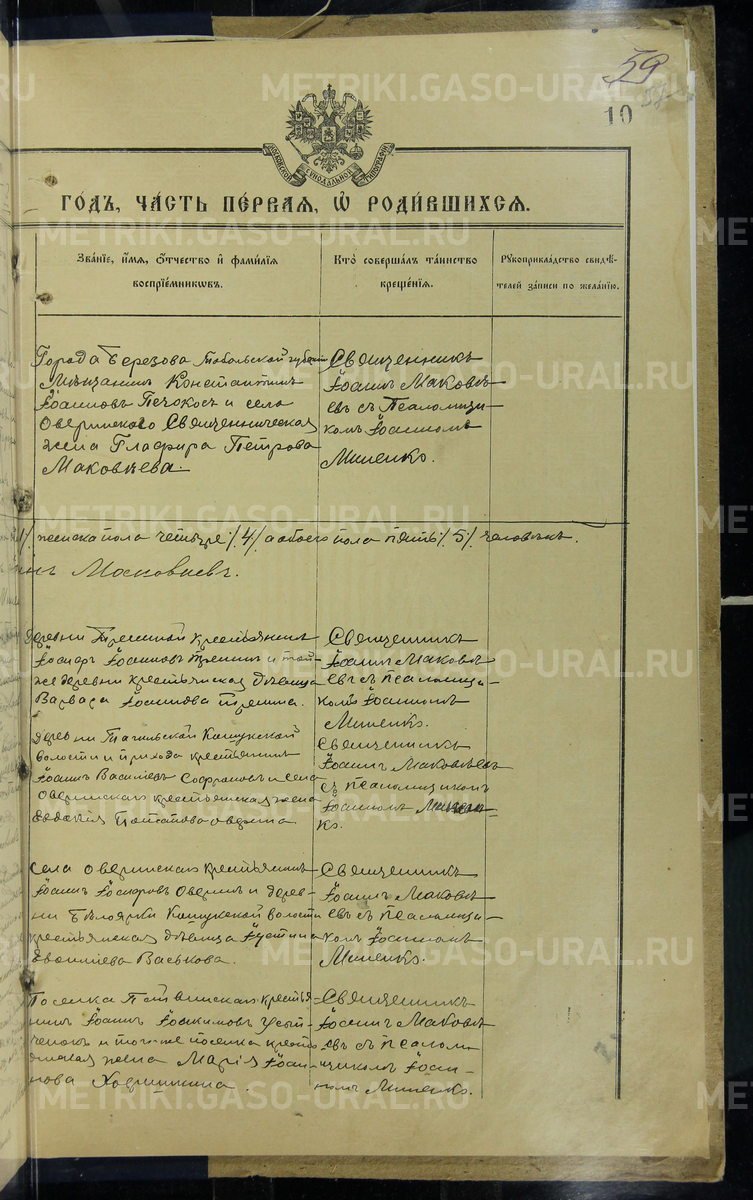 59
58
10
МОСКОВСКОЙ СѴНОДАЛЬНОЙ ТИПОГРАФІИ
ГО́ДЪ, ЧА́СТЬ ПЕ́РВАЯ, Ѡ҆ РОДИ́ВШИХСЯ.
Зва́нїе, и҆́мѧ, ѻ҆́тчество и҆ фами́лїѧ
воспрїе́мникѡвъ.
Кто̀ соверша́лъ та́инство
креще́нїѧ.
Рꙋкоприкла́дство свидѣ́-
телей за́писи по жела́нїю.
Города Березова Тобольской губерніи
Мѣщанинъ Константинъ
Іоанновъ Печокосъ и села
Оверинскаго Священническая
жена Глафира Петрова
Маковѣева.
Священникъ
Іоаннъ Маковѣ
евъ съ Псаломщи-
комъ Іоанномъ
Миненко.
женска пола четыре /4/ а обоего пола пять /5/ человѣкъ.
Маковѣевъ.
Деревни крестьянинъ
Іосифъ Іоанновъ и той-
же деревни крестьянская дѣвица
Варвара Іоаннова
Священникъ
Іоаннъ Маковѣ
евъ съ псаломщи-
комъ Іоанномъ
Миненко.
Деревни Тагильской
волости и прихода крестьянинъ
Іоаннъ Василіевъ и села
Оверинскаго крестьянская жена
Евдокія Оверина
Священникъ
Іоаннъ Маковѣевъ
съ псаломщикомъ
Іоанномъ Минен-
ко.
Села Оверинскаго крестьянинъ
Іоаннъ Оверинъ и дерев-
ни Бѣлоярки волости
крестьянская дѣвица Іустина
Васькова.
Священникъ
Іоаннъ Маковѣ
евъ съ псаломщи-
комъ Іоанномъ
Миненко.
Поселка крестья-
нинъ Іоаннъ Іоакимовъ
и того же поселка кресть
янская жена Марія Іоан-
нова
Священникъ
Іоаннъ Маковѣ
евъ съ псалом-
щикомъ Іоан-
номъ Миненко.
METRIKI.GASO-URAL.RU